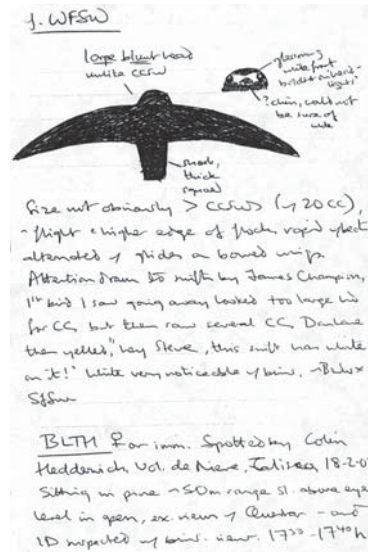 1. WFSW
large blunt head
unlike CCSW
gleaming
white front
bold
lights"
? chin, could not
be sure of
short,
thick
squared
Size not obviously > CCSWs (~ 20 CC),
flight higher edge of flock, rapid
alternated glides on bowed wings.
Attention drawn to swifts by James Champion,
1st bird I saw going away looked too large
for CC, but then saw several CC,
then yelled, "hey Steve, this swift has white
on it!" White very noticeable bins.
BLTH ♀ or imm. Spotted by Colin
Vol. de Nieve, Jalisco 18-2-0
Sitting in pine ~50m range sl. above eye
level in open, ex. views Questar - and
ID suspected bins. view. 1730 - 1740 h